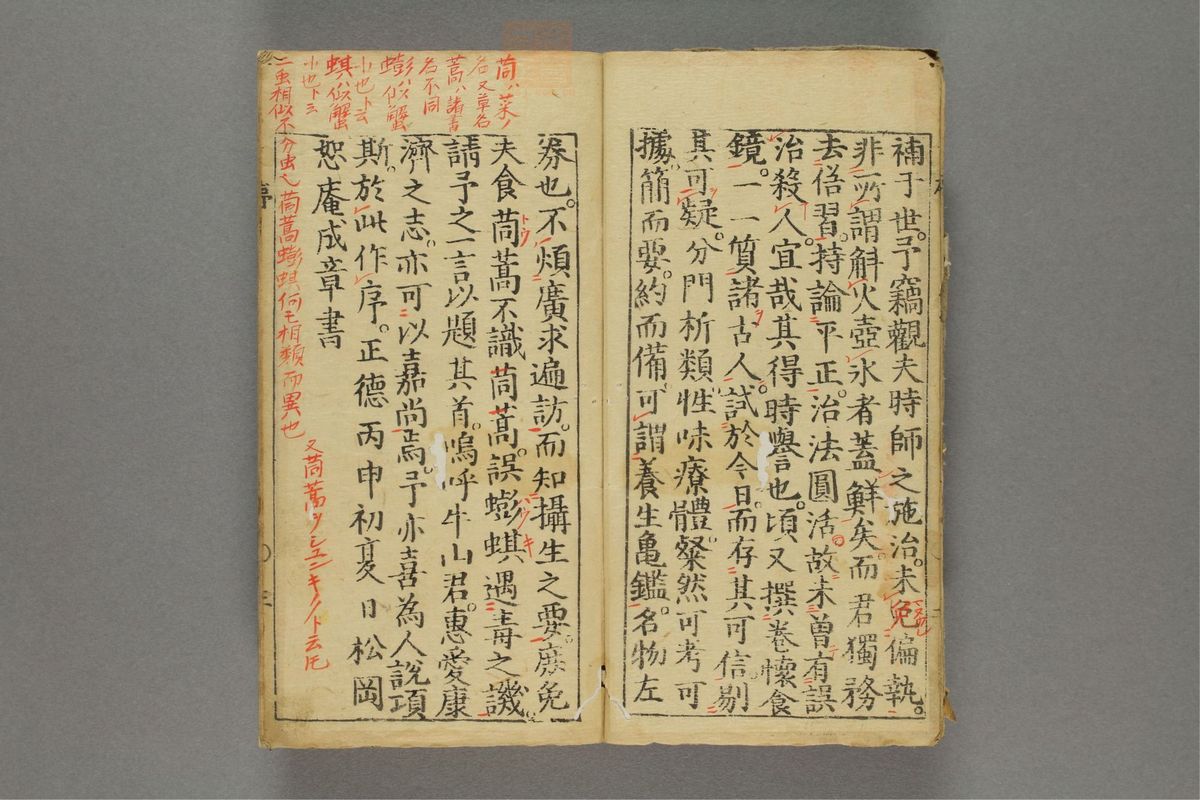 補于世。予竊觀夫時師之施治。未免偏執。
非所謂斛火壺氷者蓋鮮矣。而君獨務
去俗習。持論平正。治法圓活。故未曾有誤
治殺人。宜哉其得時譽也。頃又撰卷懐食
鏡。一一質諸古人。試於今日。而存其可信。剔
其可疑。分門析類。性味療體。粲然可考可
據。簡而要。約而備。可謂養生亀鑑。名物左
券也。不煩廣求遍訪。而知攝生之要。庶免
夫食茼蒿不識茼蒿。誤蟛蜞遇毒之譏。
請予之一言以題其首。嗚呼牛山君。惠愛康
濟之志。亦可以嘉尚焉。予亦喜為人說項
斯。於此作序。正德丙申初夏日松岡
恕庵成章書
茼ハ菜ノ
名又草名
蒿ハ諸書
名不同
蟛ハ似蟹
小也ト云
蜞ハ似蟹
小也ト云
二虫相似不分虫也茼蒿蟛蜞何モ相類而異也
又茼蒿ヲシユンキクノト云圧
トウ
ハウキ